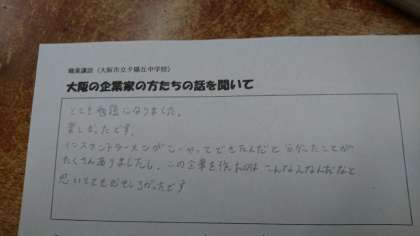 職業講話（大阪市立夕陽丘中学校）
大阪の企業家の方たちの話を聞いて
とても勉強になりました。
楽しかったです。
インスタントラーメンがこうやってできたんだと分かったことが
たくさんありましたし、この企業を作ったのは こんな人なんだなと
思いとてもおもしろかったです